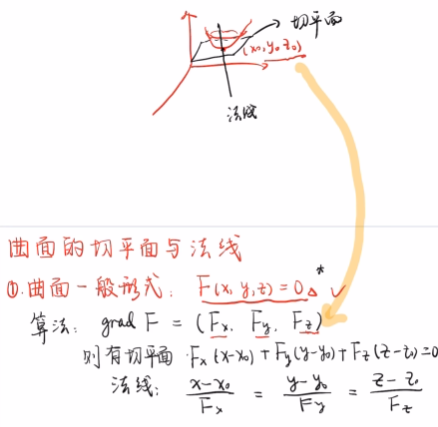 切平面
(x₀, y₀ z₀)
法线
曲面的切平面与法线
①.曲面一般形式: F(x, y, z) = 0 △ * ✓
算法: grad F = (Fx, Fy, Fz)
则有切平面·Fx(x-x₀)+Fy(y-y₀)+Fz(z-z₀)=0
法线: (x-x₀)/Fx = (y-y₀)/Fy = (z-z₀)/Fz